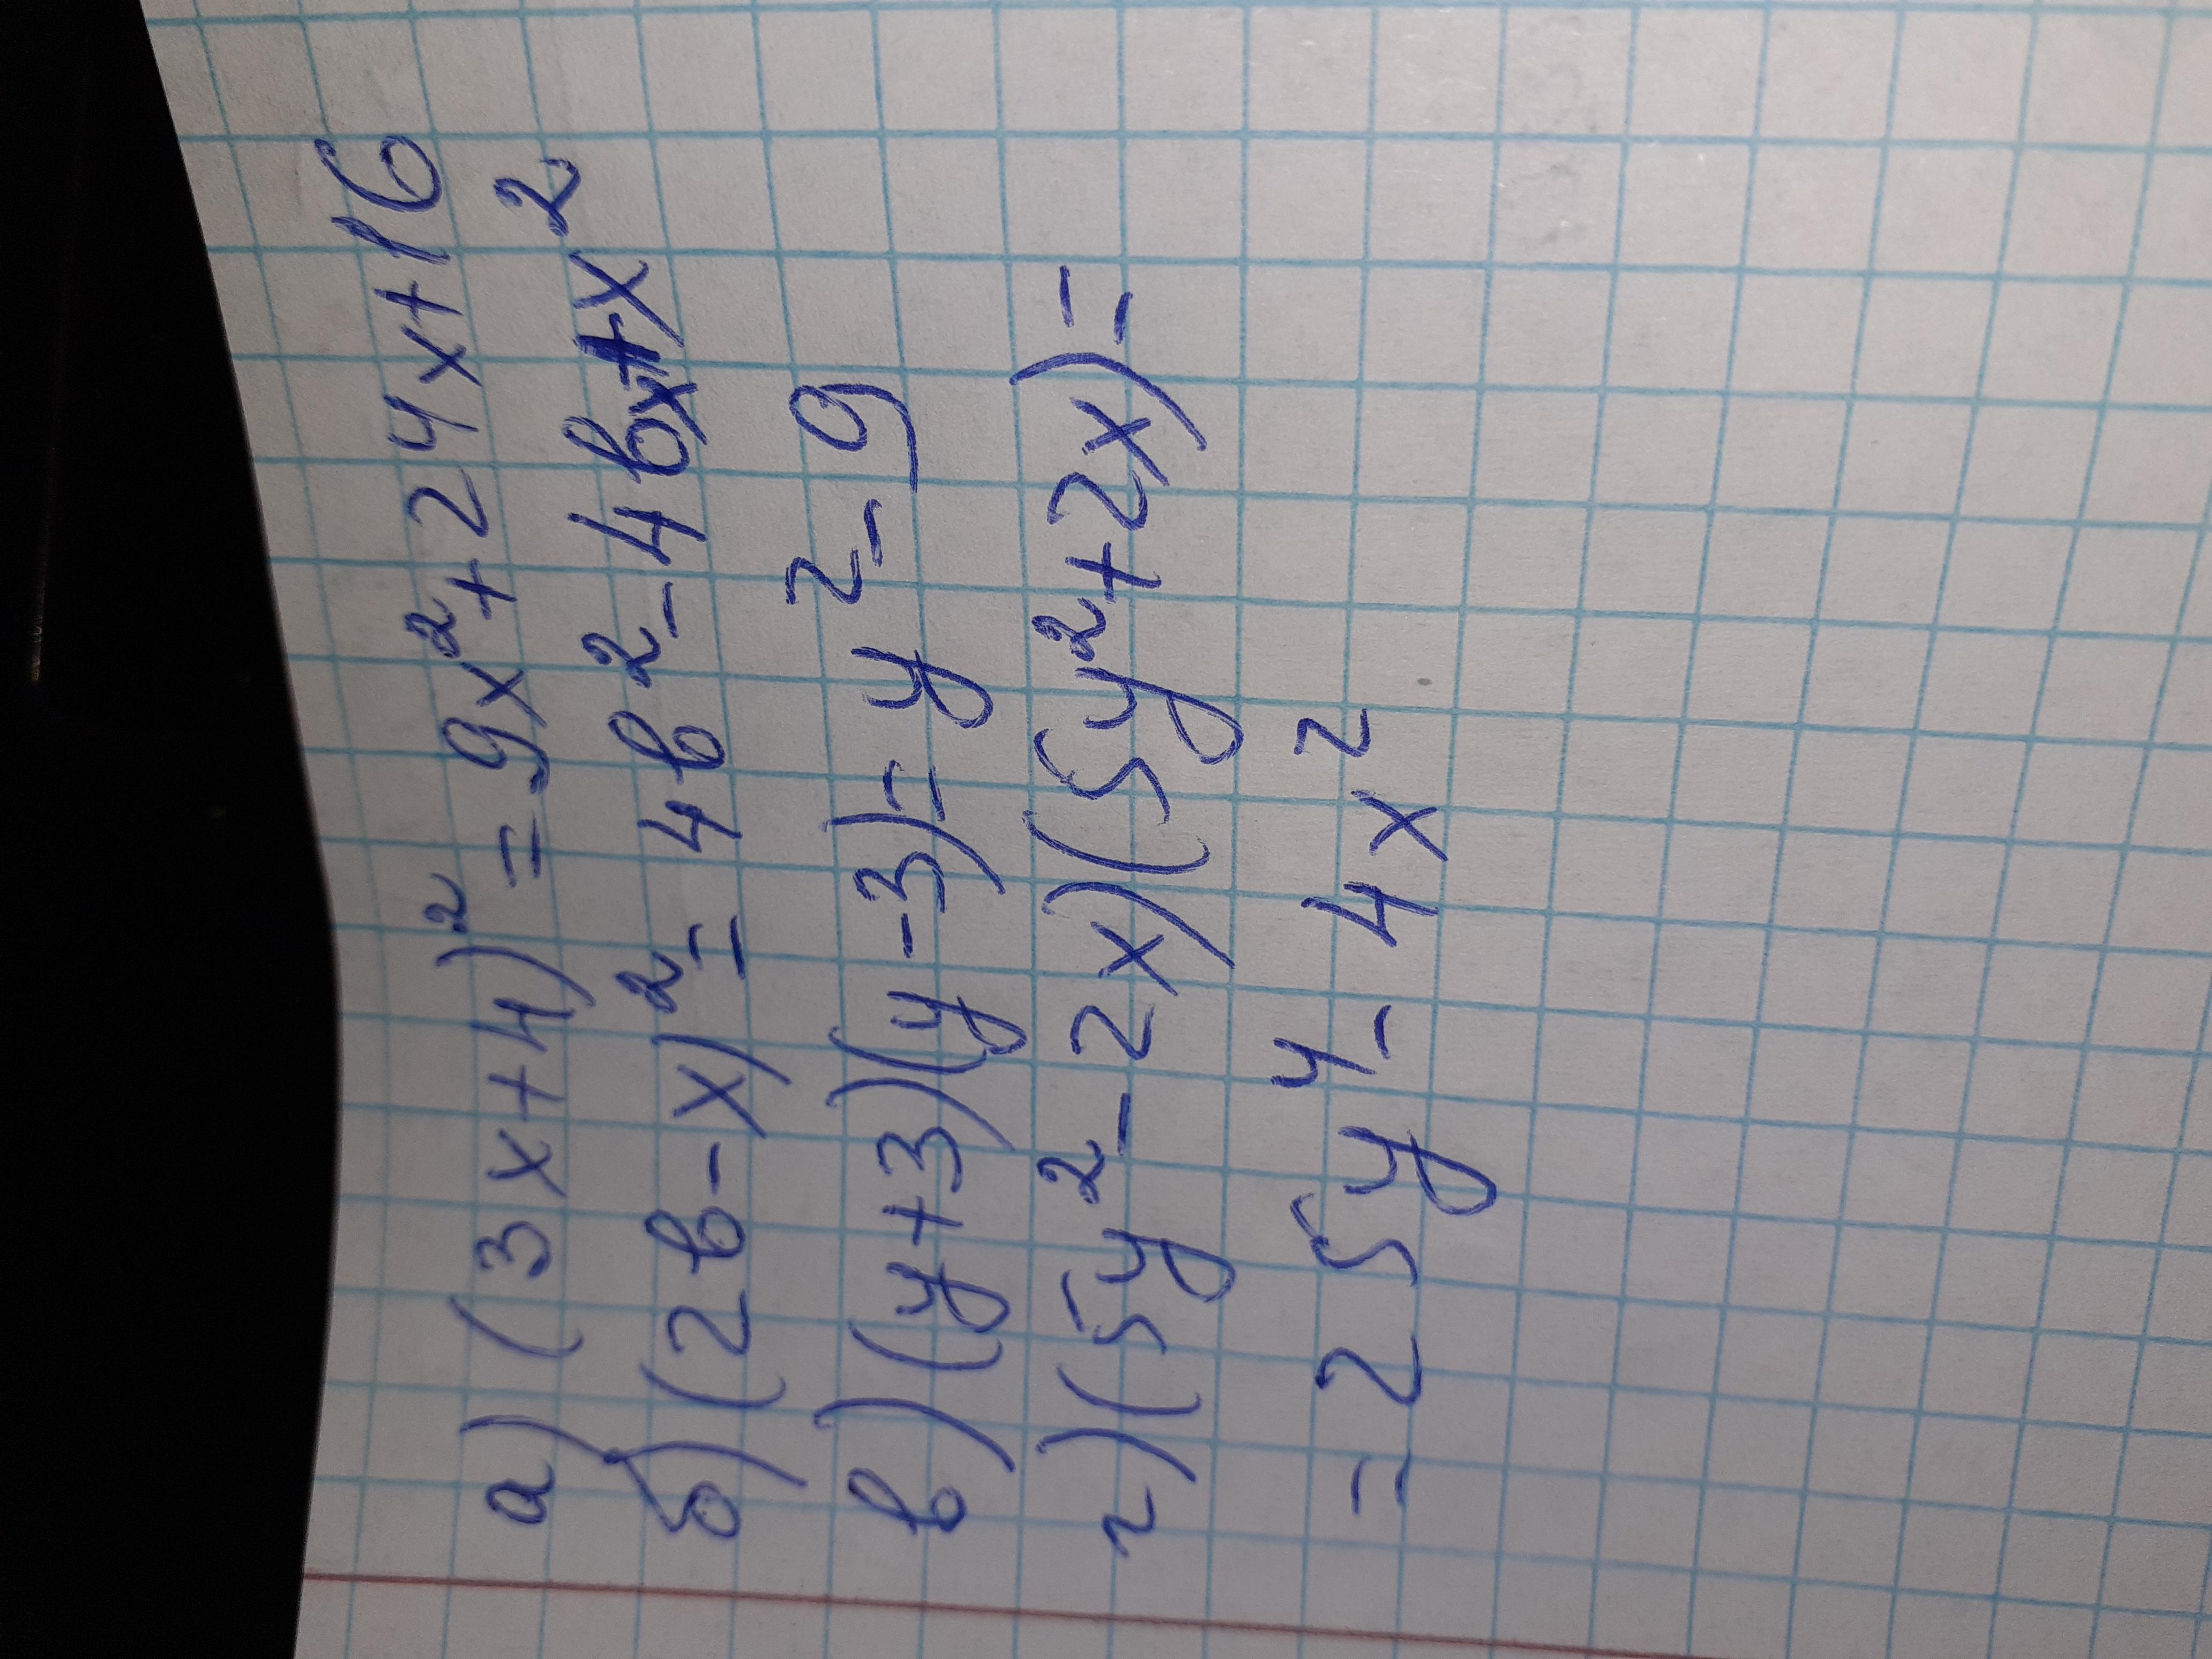 а) (3x+4)² = 9x²+24x+16
б) (2в-x)² = 4в²-4вx+x²
в) (y+3)(y-3)= y²-9
г) (5y²-2x)(5y²+2x)=
= 25y⁴- 4x²